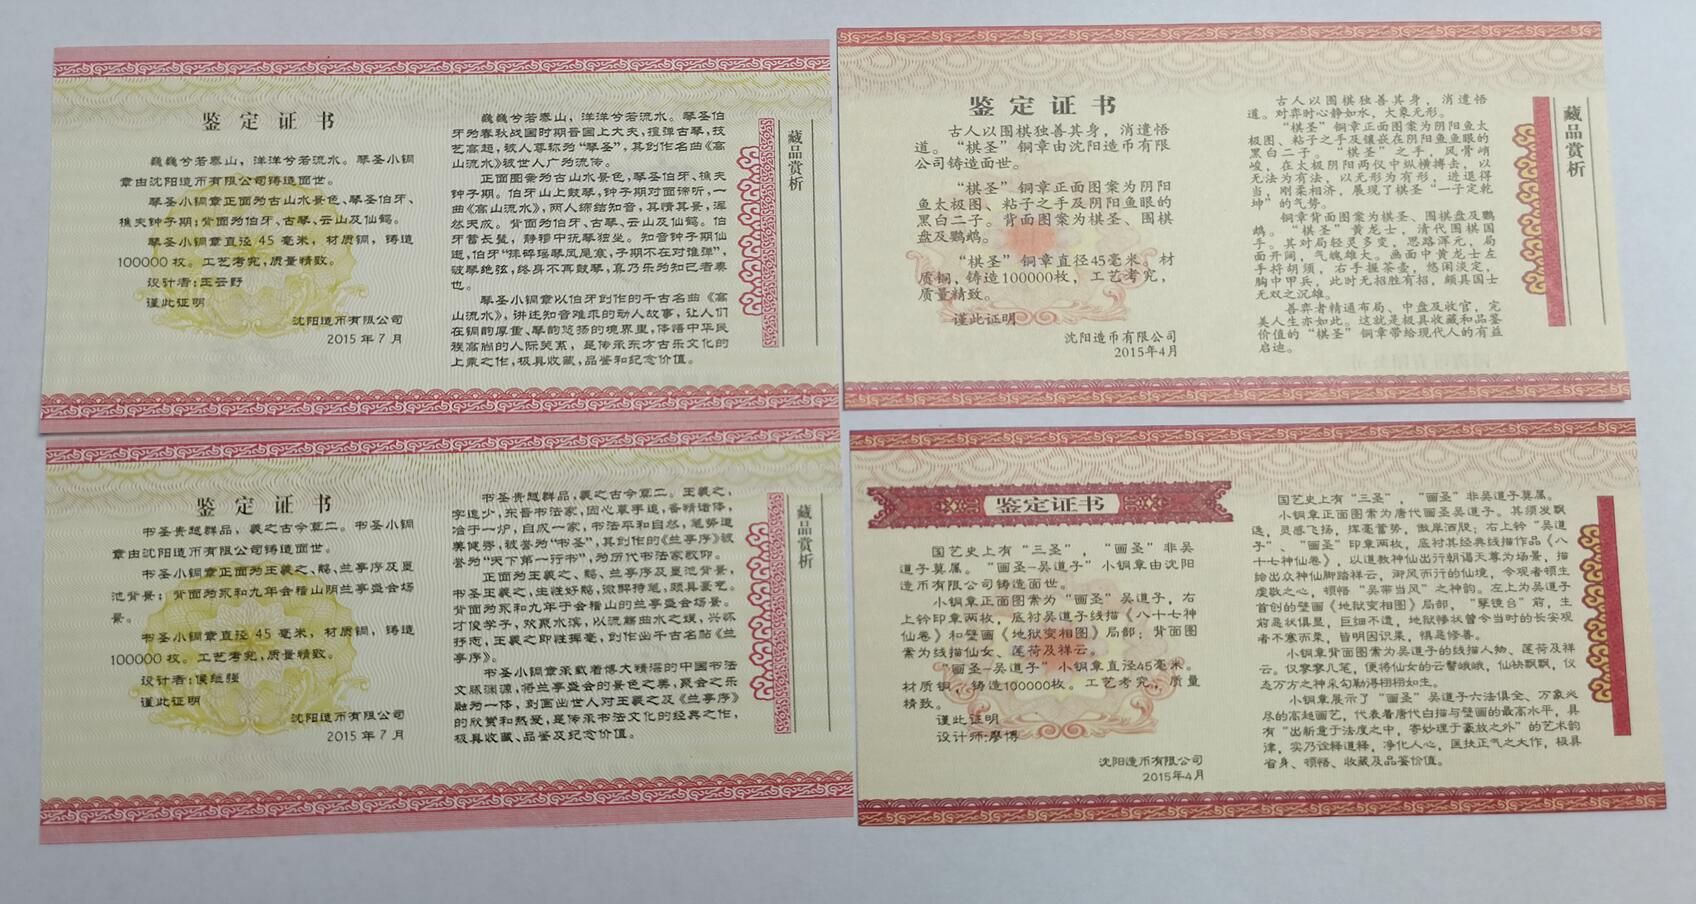 鉴定证书
巍巍兮若泰山，洋洋兮若流水。琴圣小铜
章由沈阳造币有限公司铸造面世。
琴圣小铜章正面为古山水景色、琴圣伯牙、
樵夫钟子期；背面为伯牙、古琴、云山及仙鹤。
琴圣小铜章直径 45 毫米，材质铜，铸造
100000 枚。工艺考究，质量精致。
设计者：王云野
谨此证明
沈阳造币有限公司
2015 年 7 月
巍巍兮若泰山，洋洋兮若流水。琴圣伯
牙为春秋战国时期晋国上大夫，擅弹古琴，技
艺高超，被人尊称为“琴圣”，其创作名曲《高
山流水》被世人广为流传。
正面图案为古山水景色，琴圣伯牙、樵夫
钟子期。伯牙山上鼓琴，钟子期对面谛听，一
曲《高山流水》，两人缔结知音，其情其景，浑
然天成。背面为伯牙、古琴、云山及仙鹤。伯
牙蓄长髯，静穆中抚琴独坐。知音钟子期仙
逝，伯牙“摔碎瑶琴凤尾寒，子期不在对谁弹”，
破琴绝弦，终身不再鼓琴，真乃乐为知己者奏
也。
琴圣小铜章以伯牙创作的千古名曲《高
山流水》，讲述知音难求的动人故事，让人们
在铜的厚重、琴韵悠扬的境界里，体悟中华民
族高尚的人际关系，是传承东方古乐文化的
上乘之作，极具收藏，品鉴和纪念价值。
藏品赏析
鉴定证书
古人以围棋独善其身，消遣悟
道。“棋圣”铜章由沈阳造币有限
公司铸造面世。
“棋圣”铜章正面图案为阴阳
鱼太极图、粘子之手及阴阳鱼眼的
黑白二子。背面图案为棋圣、围棋
盘及鹦鹉。
“棋圣”铜章直径45毫米，材
质铜，铸造100000枚，工艺考究，
质量精致。
谨此证明
沈阳造币有限公司
2015年4月
古人以围棋独善其身，消遣悟
道。对弈时心静如水，大象无形。
“棋圣”铜章正面图案为阴阳鱼太
极图、粘子之手及镶嵌在阴阳鱼鱼眼的
黑白二子。“棋圣”之手，风骨峭
峻，在太极阴阳两仪中纵横搏击，以
无法为有法，以无形为有形，进退得
当，刚柔相济，展现了棋圣“一子定乾
坤”的气势。
铜章背面图案为棋圣、围棋盘及鹦
鹉。“棋圣”黄龙士，清代围棋国
手。其对局轻灵多变，思路浑元，局
面开阔，气魄雄大。画面中黄龙士左
手捋胡须，右手握茶壶，悠闲淡定，
胸中甲兵，此时无招胜有招，颇具国士
无双之沉雄。
善弈者精通布局、中盘及收官，完
美人生亦如此。这就是极具收藏和品鉴
价值的“棋圣”铜章带给现代人的有益
启迪。
藏品赏析
鉴定证书
书圣贵越群品，羲之古今莫二。书圣小铜
章由沈阳造币有限公司铸造面世。
书圣小铜章正面为王羲之、鹅、兰亭序及墨
池背景；背面为永和九年会稽山阴兰亭盛会场
景。
书圣小铜章直径 45 毫米，材质铜，铸造
100000 枚。工艺考究，质量精致。
设计者：侯继强
谨此证明
沈阳造币有限公司
2015 年 7 月
书圣贵越群品，羲之古今莫二。王羲之，
字逸少，东晋书法家，因心摹手追，备精诸体，
冶于一炉，自成一家，书法平和自然，笔势遒
美健秀，被誉为“书圣”，其创作的《兰亭序》被
誉为“天下第一行书”，为历代书法家敬仰。
正面为王羲之、鹅、兰亭序及墨池背景，
书圣王羲之，生性好鹅，微醉持笔，颇具豪艺。
背面为永和九年于会稽山的兰亭盛会场景。
才俊学子，欢聚水滨，以流觞曲水之娱，兴怀
抒志，王羲之即胜挥毫，创作出千古名帖《兰
亭序》。
书圣小铜章承载着博大精深的中国书法
文脉渊源，将兰亭盛会的景色之美，聚会之乐
融为一体，刻画出世人对王羲之及《兰亭序》
的欣赏和热爱，是传承书法文化的经典之作，
极具收藏、品鉴及纪念价值。
藏品赏析
鉴定证书
国艺史上有“三圣”，“画圣”非吴
道子莫属。“画圣—吴道子”小铜章由沈阳
造币有限公司铸造面世。
小铜章正面图案为“画圣”吴道子，右
上钤印章两枚，底衬吴道子线描《八十七神
仙卷》和壁画《地狱变相图》局部；背面图
案为线描仙女、莲荷及祥云。
“画圣—吴道子”小铜章直径45毫米。
材质铜，铸造100000枚。工艺考究，质量
精致。
谨此证明
设计师:廖博
沈阳造币有限公司
2015年4月
国艺史上有“三圣”，“画圣”非吴道子莫属。
小铜章正面图案为唐代画圣吴道子。其须发飘
逸，灵感飞扬，挥毫蓄势，傲岸洒脱；右上钤“吴道
子”、“画圣”印章两枚，底衬其经典线描作品《八
十七神仙卷》，以道教神仙出行朝谒天尊为场景，描
绘出众神仙脚踏祥云，御风而行的仙境，令观者顿生
虔敬之心，顿悟“吴带当风”之神韵。左上为吴道子
首创的壁画《地狱变相图》局部，“孽镜台”前，生
前是状俱显，巨细不遗，地狱惨状曾令当时的长安观
者不寒而栗，皆明因识果，惧是修善。
小铜章背面图案为吴道子的线描人物、莲荷及祥
云。仅寥寥几笔，便将仙女的云髻峨峨，仙袂飘飘，仪
态万方之神采勾勒得栩栩如生。
小铜章展示了“画圣”吴道子六法俱全、万象必
尽的高超画艺，代表着唐代白描与壁画的最高水平，具
有“出新意于法度之中，寄妙理于豪放之外”的艺术韵
律，实乃诠释道释，净化人心，匡扶正气之大作，极具
省身、顿悟、收藏及品鉴价值。